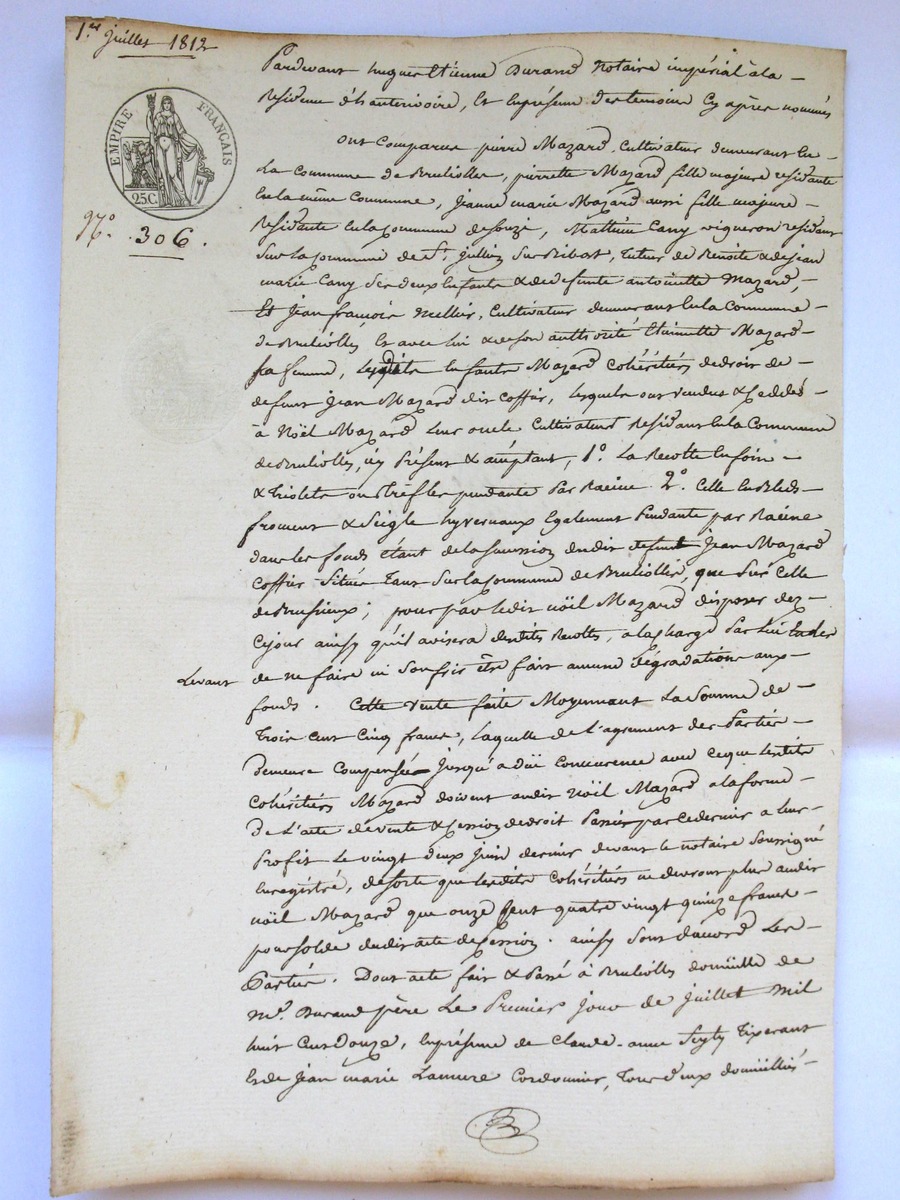 1er juillet 1812
EMPIRE FRANÇAIS
25C.
N.º 306.
Pardevant hugues Etienne Durand Notaire impérial à la
Residence d'hauterivoire, Et En présence des temoins Cy après nommés
ont Comparus pierre Mazard Cultivateur demeurant En
La Commune de Brulioles, pierrette Mazard fille majeure residante
En la même Commune, jeanne marie Mazard aussi fille majeure
Residante En la Commune de souzi, Mathieu Cany vigneron residant
Sur la Commune de St. jullien Sur Bibost, tuteur de Benoite & de jean
marie Cany Ses deux Enfants & de defunte antoinette Mazard,
Et jean françois Nellier, Cultivateur demeurant En la Commune
de Brulioles, Et avec lui & de son authorité Etiennette Mazard
sa femme, Lesdits Enfants Mazard Cohéritiers de droit de
defunt jean Mazard dit Coffier, lesquels ont vendus & Ceddés
à Nöel Mazard Leur oncle Cultivateur Residant En la Commune
de Brulioles, icy Présent & aceptant, 1º. La Recolte En foin
& triolets ou trêfles pendante Par Racine 2º. Celle En Bleds
froment & Seigle hyvernaux Egalement Pendante par Racine
dans les fonds étant de la sucession dudit defunt jean Mazard
Coffier Situés tant Sur la Commune de Brulioles, que Sur Celle
de Brussieux; pour par ledit nöel Mazard disposer dez
Cejour ainsy qu'il avisera desdites Recoltes, a la charge Par Lui En les
Levant
de ne faire ni Souffrir être fait aucune dégradations aux
fonds. Cette vente faite Moyennant La Somme de
trois Cent Cinq francs, Laquelle de L'agrement des Parties
Demeure Compensée jusqu'a düe Concurence avec Ceque Lesdits
Cohéritiers Mazard doivent audit Nöel Mazard a la forme
de L'acte de vente & Cession de droit Passés par Ce dernier a leur
Profit Le vingt deux juin dernier devant le notaire Soussigné
Enregistré, desorte que Lesdits Cohéritiers ne devront plus audit
nöel Mazard que onze Cent quatre vingt quinze francs
pour solde dudit acte de Cession. ainsy Sont d'accord Les
Parties. Dont acte fait & Passé à Brulioles domicille de
Mr. Durand père Le Premier jour de juillet Mil
huit Cent Douze, En présence de Claude anne tixerant
Et de jean marie Cordonnier, tous deux domiciliés